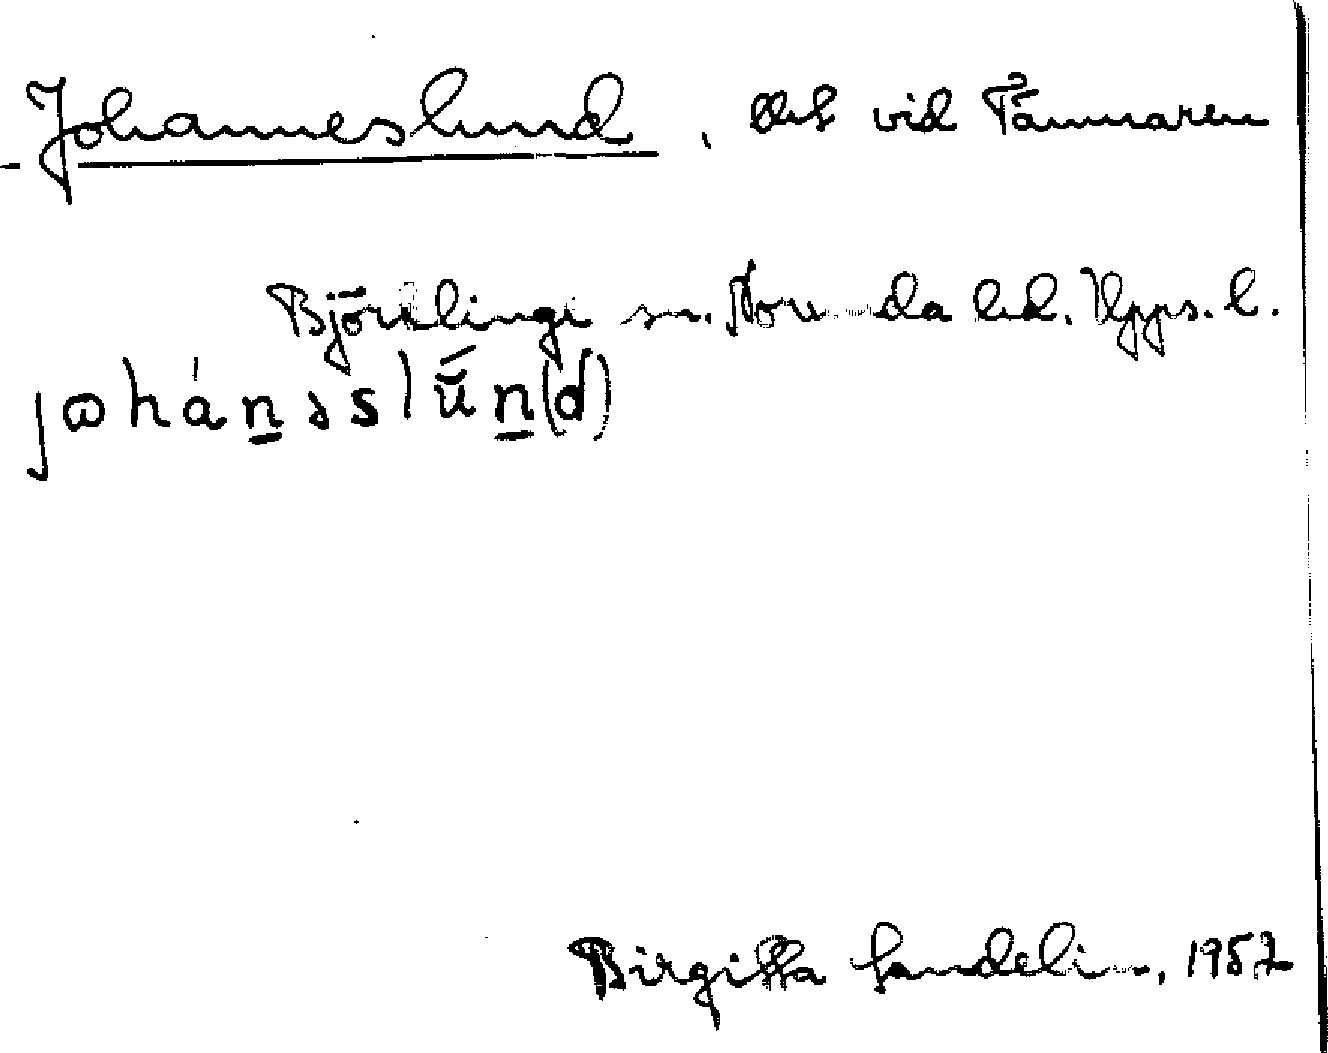 Johanneslund, vid Tämnaren
Björklinge sn. Norunda hd. Upps. l.
jωhánəslŭ́n(d)
Birgitta Sandelin, 1957